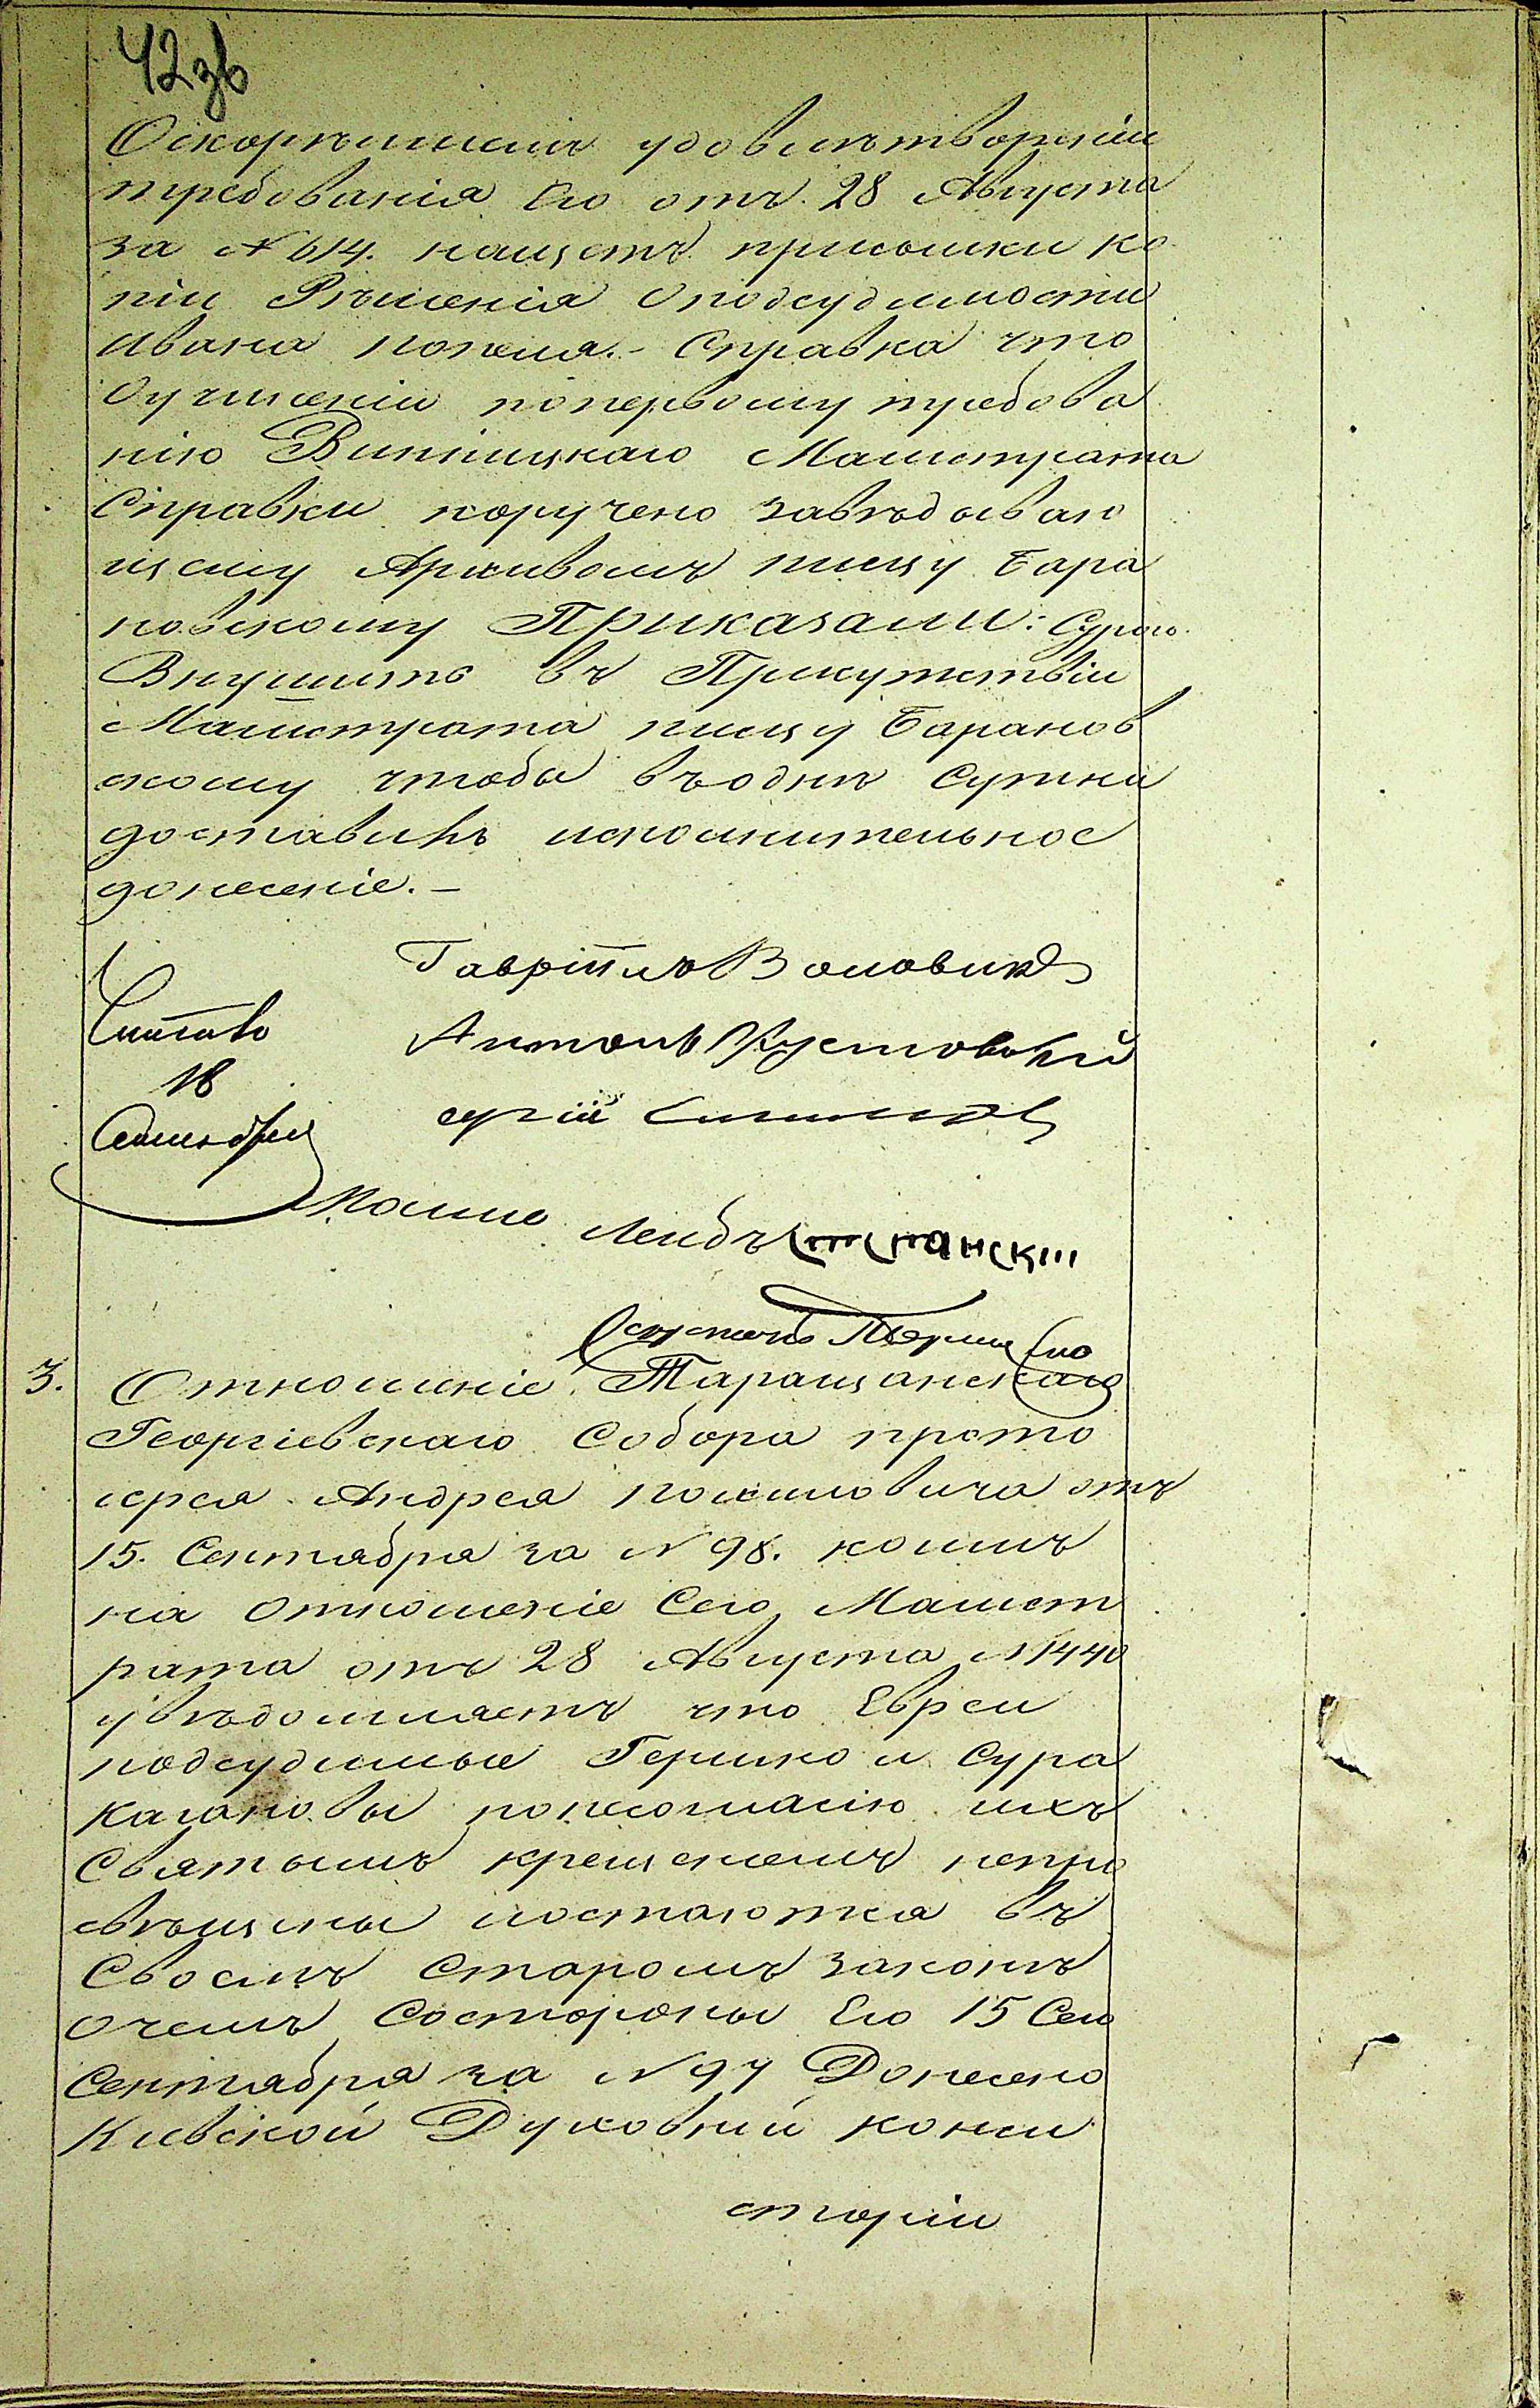 42 зв
Оскорѣйшемъ удовлетвореніи
требованія Его отъ 28 Августа
за № 614. нащетъ присылки ко
піи Рѣшенія Оподсудимости
Ивана попеля. – Справка что
Оучиненіи попервому требова
нію Винницкаго Магистрата
Справки поручено завѣдываю
щему Архивомъ писцу Бара
новскому Приказали: Строго
Внушить въ Присутствіи
Магистрата писцу Баранов
скому чтобы въодни Сутки
доставилъ исполнительное
донесеніе. –
Гавріилъ Воловикъ
Читалъ
Антонъ
18
Сентября
сергій
Мошко Лейбъ
3.
Отношеніе Таращанскаго
Георгіевскаго Собора прото
іерея Андрея отъ
15. Сентября за № 98. коимъ
на отношеніе Сего Магист
рата отъ 28 Августа № 1440
увѣдомляетъ что Евреи
подсудимые Гершко и Сура
Кагановы понесогласію ихъ
Святымъ крещеніемъ непро
свѣщены иостаются въ
Своемъ Старомъ законѣ
Очемъ Состороны Его 15 Сего
Сентября за № 97 Донесено
Кіевской Духовній конси
сторіи